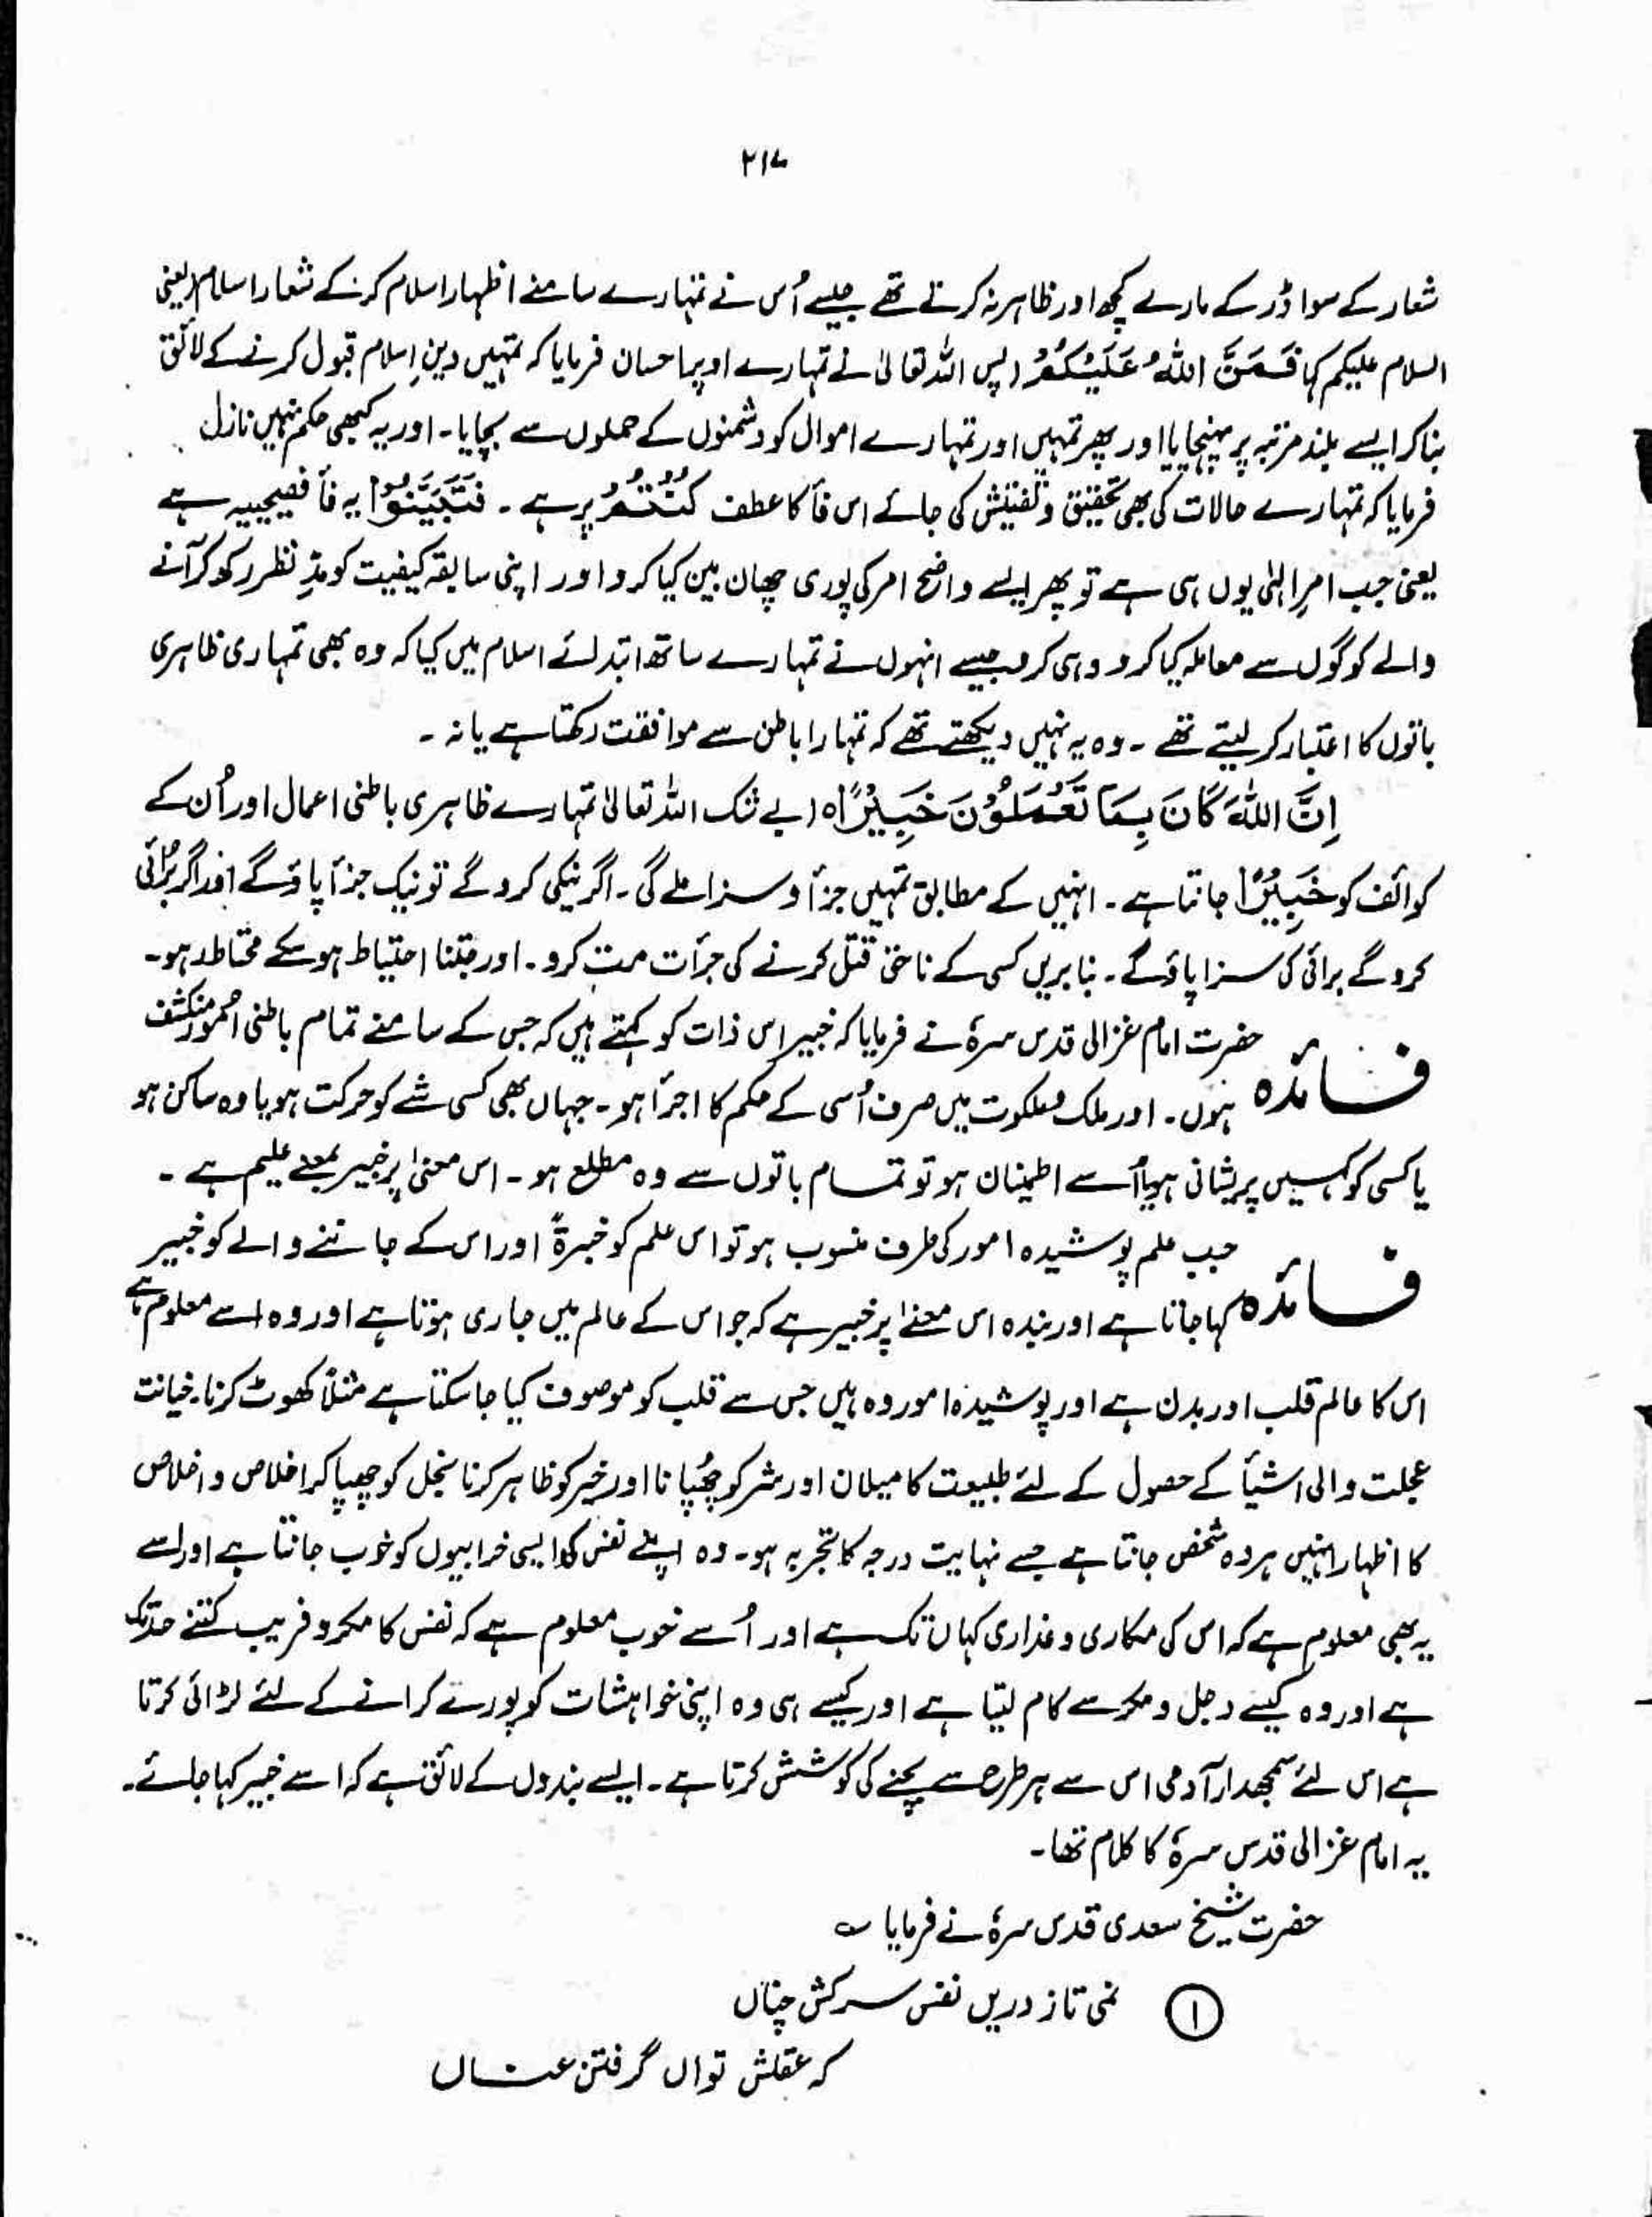 ۲۱۷
شعار کے سوا ڈر کے مارے کچھ اور ظاہر نہ کرتے تھے جیسے اُس نے تمہارے سامنے اظہار اسلام کرنے کے شعار اسلام (یعنی
السلام علیکم کہا فَمَنَّ اللّٰهُ عَلَيْكُمْ (پس اللہ تعالیٰ نے تمہارے اوپر احسان فرمایا کہ تمہیں دینِ اسلام قبول کرنے کے لائق
بنا کر ایسے بلند مرتبہ پر پہنچایا اور پھر تمہیں اور تمہارے اموال کو دشمنوں کے حملوں سے بچایا۔ اور یہ کبھی حکم نہیں نازل
فرمایا کہ تمہارے حالات کی بھی تحقیق و تفتیش کی جائے اس فأ کا عطف كُنْتُمْ پر ہے۔ فَتَبَيَّنُوْا یہ فأ فصیحیہ ہے
یعنی جب امرِ الہٰی یوں ہی ہے تو پھر ایسے واضح امر کی پوری چھان بین کیا کرو اور اپنی سابقہ کیفیت کو مدِّ نظر رکھ کر آنے
والے لوگوں سے معاملہ کیا کرو وہی کرو جیسے انہوں نے تمہارے ساتھ ابتدائے اسلام میں کیا کہ وہ بھی تمہاری ظاہری
باتوں کا اعتبار کر لیتے تھے۔ وہ یہ نہیں دیکھتے تھے کہ تمہارا باطن سے موافقت رکھتا ہے یا نہ۔
اِنَّ اللّٰهَ كَانَ بِمَا تَعْمَلُوْنَ خَبِيْرًاہ (بے شک اللہ تعالیٰ تمہارے ظاہری باطنی اعمال اور اُن کے
کوائف کو خَبِيْرًا جانتا ہے۔ انہیں کے مطابق تمہیں جزأ و سزا ملے گی۔ اگر نیکی کرو گے تو نیک جزأ پاؤ گے اور اگر بُرائی
کرو گے برائی کی سزا پاؤ گے۔ بنا بریں کسی کے ناحق قتل کرنے کی جرأت مت کرو۔ اور جتنا احتیاط ہو سکے محتاط رہو۔
فائدہ حضرت امام غزالی قدس سرہٗ نے فرمایا کہ خبیر اس ذات کو کہتے ہیں کہ جس کے سامنے تمام باطنی اُمور منکشف
ہوں۔ اور ملک و ملکوت میں صرف اُسی کے حکم کا اجرأ ہو۔ جہاں بھی کسی شے کو حرکت ہو یا وہ ساکن ہو
یا کسی کو کہیں پریشانی ہو یا اُسے اطمینان ہو تو تمام باتوں سے وہ مطلع ہو۔ اس معنیٰ پر خبیر بمعنے علیم ہے۔
فائدہ جب علم پوشیدہ امور کی طرف منسوب ہو تو اس علم کو خبرۃً اور اس کے جاننے والے کو خبیر
کہا جاتا ہے اور بندہ اس معنےٰ پر خبیر ہے کہ جو اس کے عالم میں جاری ہوتا ہے اور وہ اسے معلوم ہے
اس کا عالم قلب اور بدن ہے اور پوشیدہ امور وہ ہیں جس سے قلب کو موصوف کیا جا سکتا ہے مثلاً کھوٹ کرنا۔ خیانت
عجلت والی اشیأ کے حصول کے لئے طبیعت کا میلان اور شر کو چُھپانا اور خیر کو ظاہر کرنا بخل کو چھپا کر اخلاص و اخلاص
کا اظہار انہیں ہر وہ شخص جانتا ہے جسے نہایت درجہ کا تجربہ ہو۔ وہ اپنے نفس کو ایسی خرابیوں کو خوب جانتا ہے اور اسے
یہ بھی معلوم ہے کہ اس کی مکاری و غداری کہاں تک ہے اور اُسے خوب معلوم ہے کہ نفس کا مکر و فریب کتنے حد تک
ہے اور وہ کیسے دجل و مکر سے کام لیتا ہے اور کیسے ہی وہ اپنی خواہشات کو پورے کرانے کے لئے لڑائی کرتا
ہے اس لئے سمجھدار آدمی اس سے ہر طرح سے بچنے کی کوشش کرتا ہے۔ ایسے بندوں کے لائق ہے کہ اسے خبیر کہا جائے۔
یہ امام غزالی قدس سرہٗ کا کلام تھا۔
حضرت شیخ سعدی قدس سرہٗ نے فرمایا ؎
① نمی تازد دریں نفس سرکش چناں
کہ عقلش تواں گرفتن عناں